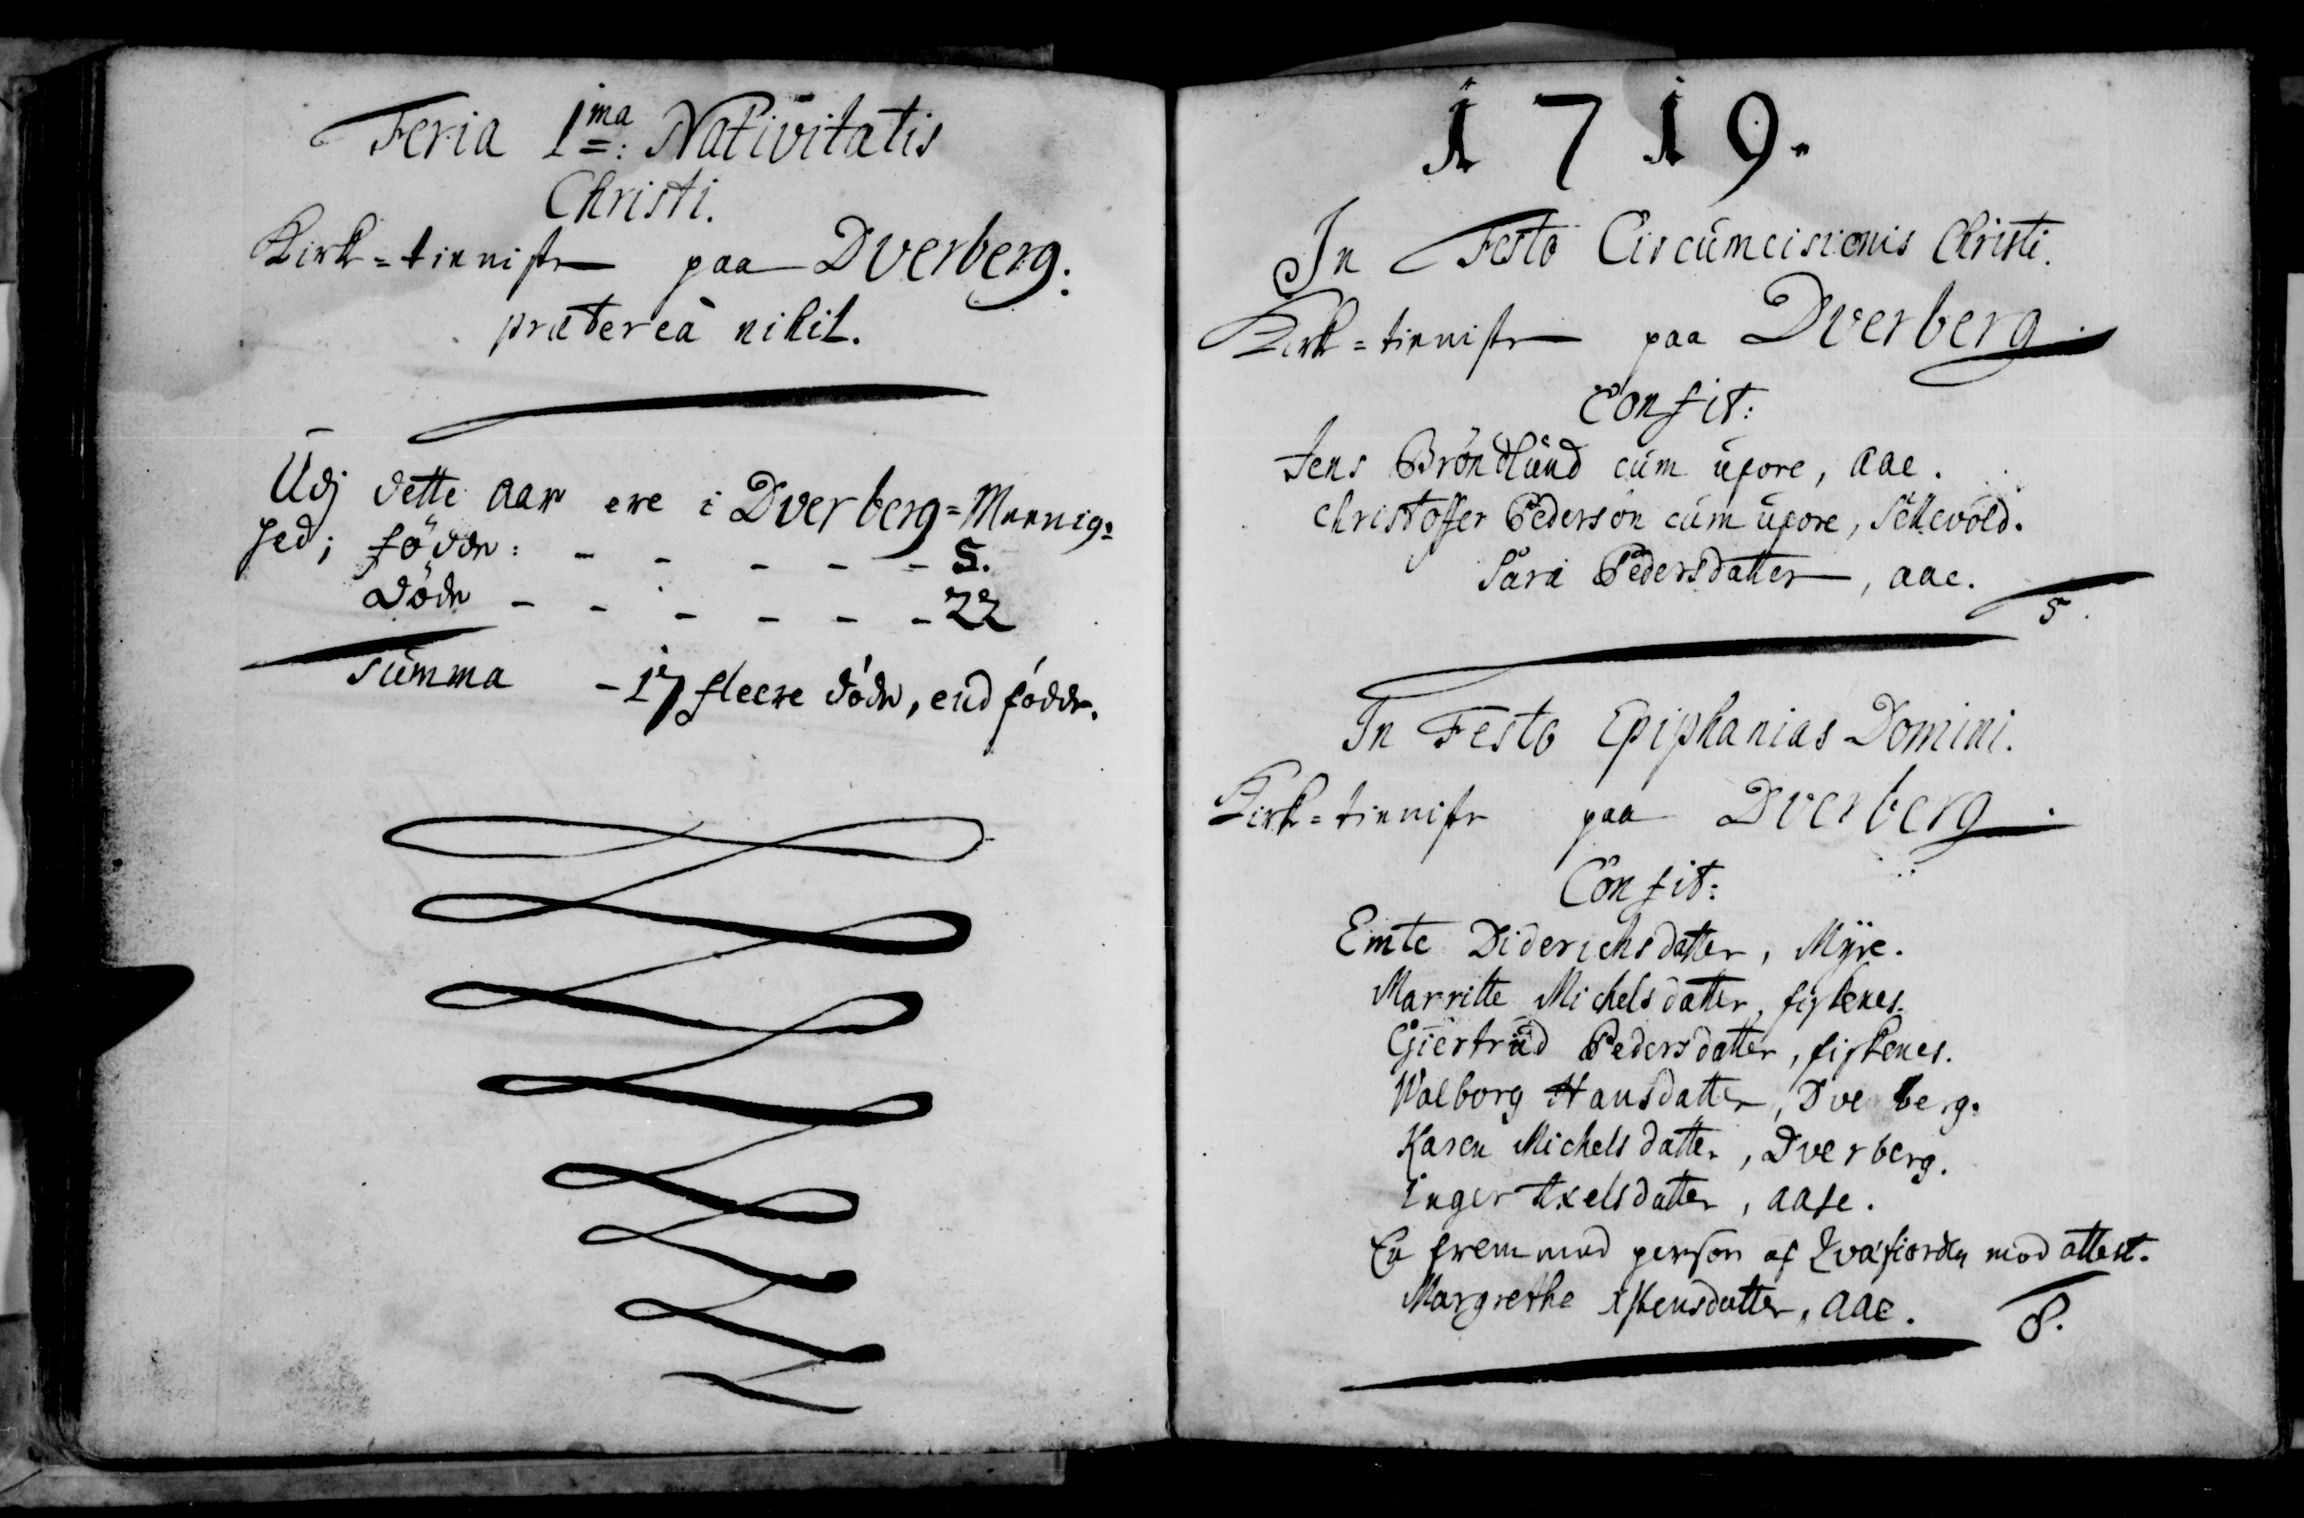 Feria 1ma: Nativitatis
Christi.
Kirke=tienniste paa Dverberg.
prætereà nihil.
Udj dette aar ere i Dverberg=Mennig=
hed; fødde: - - - - - 5.
døde - - - - - - 22
Summa - 17 fleere døde, end fødde.
1719.
In Festo Circumcisionis Christi.
Kirke=tienniste paa Dverberg.
Confit:
Jens Brøndlund cum uxore, aae.
Christoffer Pederson cum uxore, Sellevold.
Sara Pedersdatter, aae.
5.
In Festo Epiphanias Domini.
Kirke=tienniste paa Dverberg.
Confit:
Emte Diderichsdatter, Myre.
Marritte Michelsdatter, fiskenes.
Giertrud Pedersdatter, fiskenes.
Walborg Hansdatter, Dverberg.
Karen Michelsdatter, Dverberg.
Inger Axelsdatter, aase.
En fremmed person af Qvæfiorden med attest.
Margrethe Askensdatter, aae.
8.